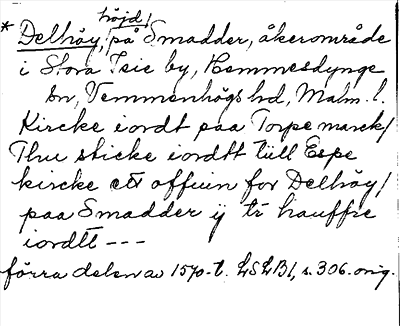 * Delhöy, höjd, på Smadder, åkerområde
i Stora Isie by, Hemmesdynge
sn, Vemmenhögs hd, Malm. l.
Kircke iordt paa Torpe marck/
Thu sticke iordtt till Espe
kircke ett offuin for Delhöy/
paa Smadder ij tr hauffre
iordtt ---
förra delen av 1570-t. LSLB1, s. 306. orig.